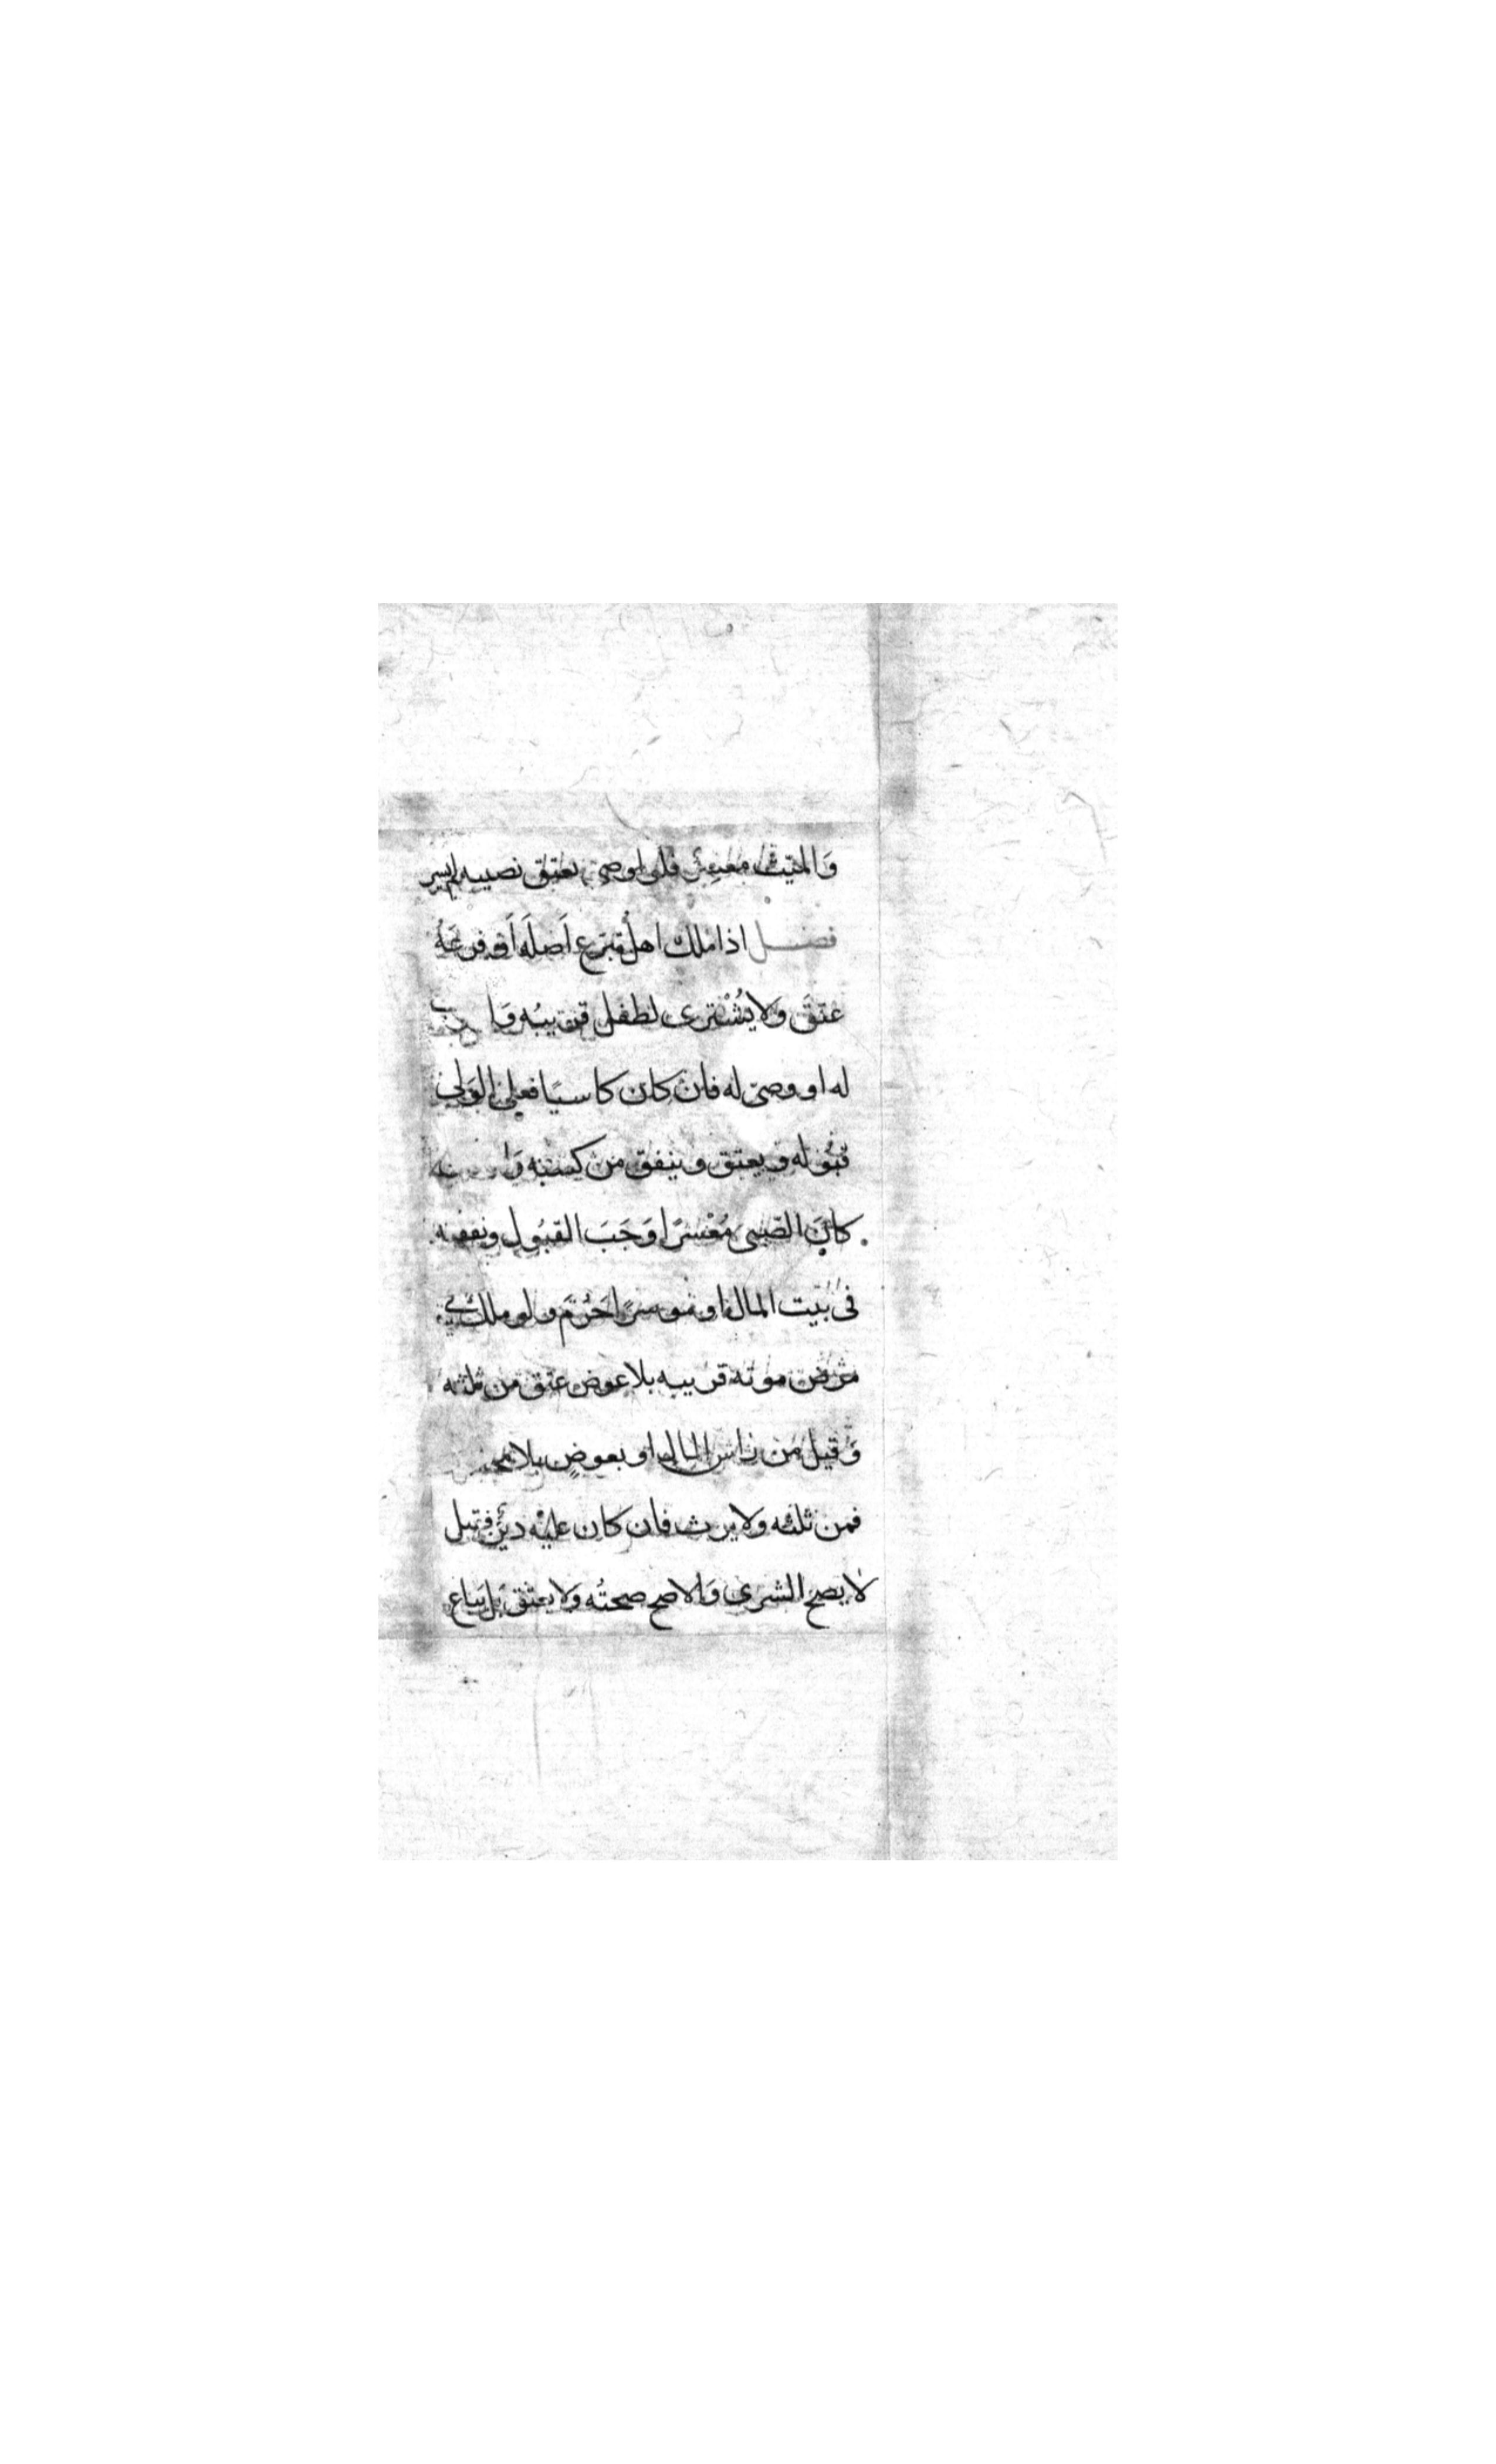 وَالميت معسر فلو اوصى بعتق نصيبه لم يسر
فصل اذا ملك اهل تبرع اَصلَه اَو فرعَهُ
عتقَ وَلا يُشْترى لطفل قريبُه وَلو
له او وصى له فان كان كاسبًا فعلى الوَلى
قبُوله و يعتق و ينفق من كسبه
كانَ الصّبى مُعْسرًا وَجَبَ القبُول ونفقته
فى بَيت المال او موسرًا حَرُم و لو ملك فى
مرض موته قريبه بلا عوض عتق من ثلثه
وَقيل من راس المال او بعوضٍ بلا
فمن ثلثه ولا يرث فان كان عليْه دينٌ فقيل
لا يصح الشرى وَالاصح صحتُه وَلا يعتق بَل يباع